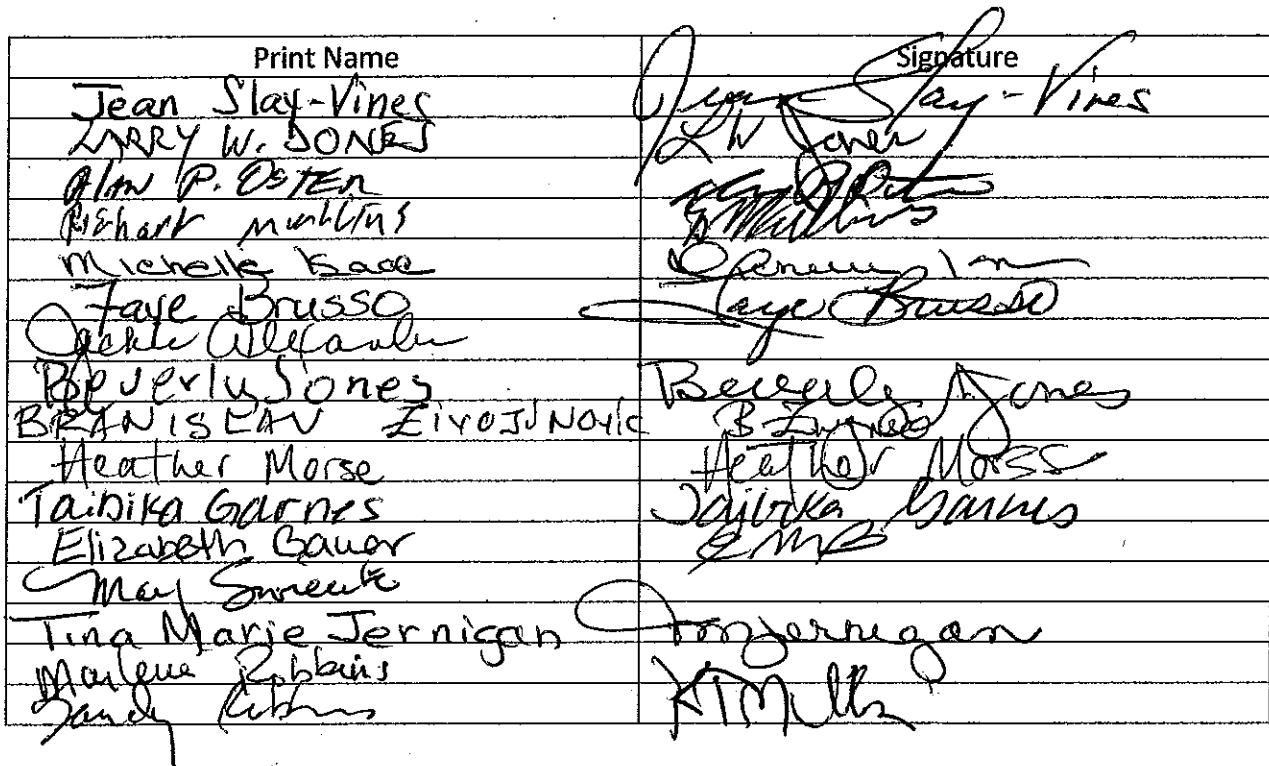 Print Name Signature
Jean Slay-Vines Jean Slay-Vines
LARRY W. JONES LW Jones
Alan P. OSTER
Richart mullins Mullins
Michelle
Faye Brusso Faye Brusso
Jackie Alexander
Beverly Jones Beverly Jones
BRANISLAV ZIVOJINOVIC
Heather Morse Heather Morse
Taibika Garnes Taibika Garnes
Elizabeth Bauer EMB
May
Tina Marie Jernigan Jernigan
Marlene Robbins
Sandy